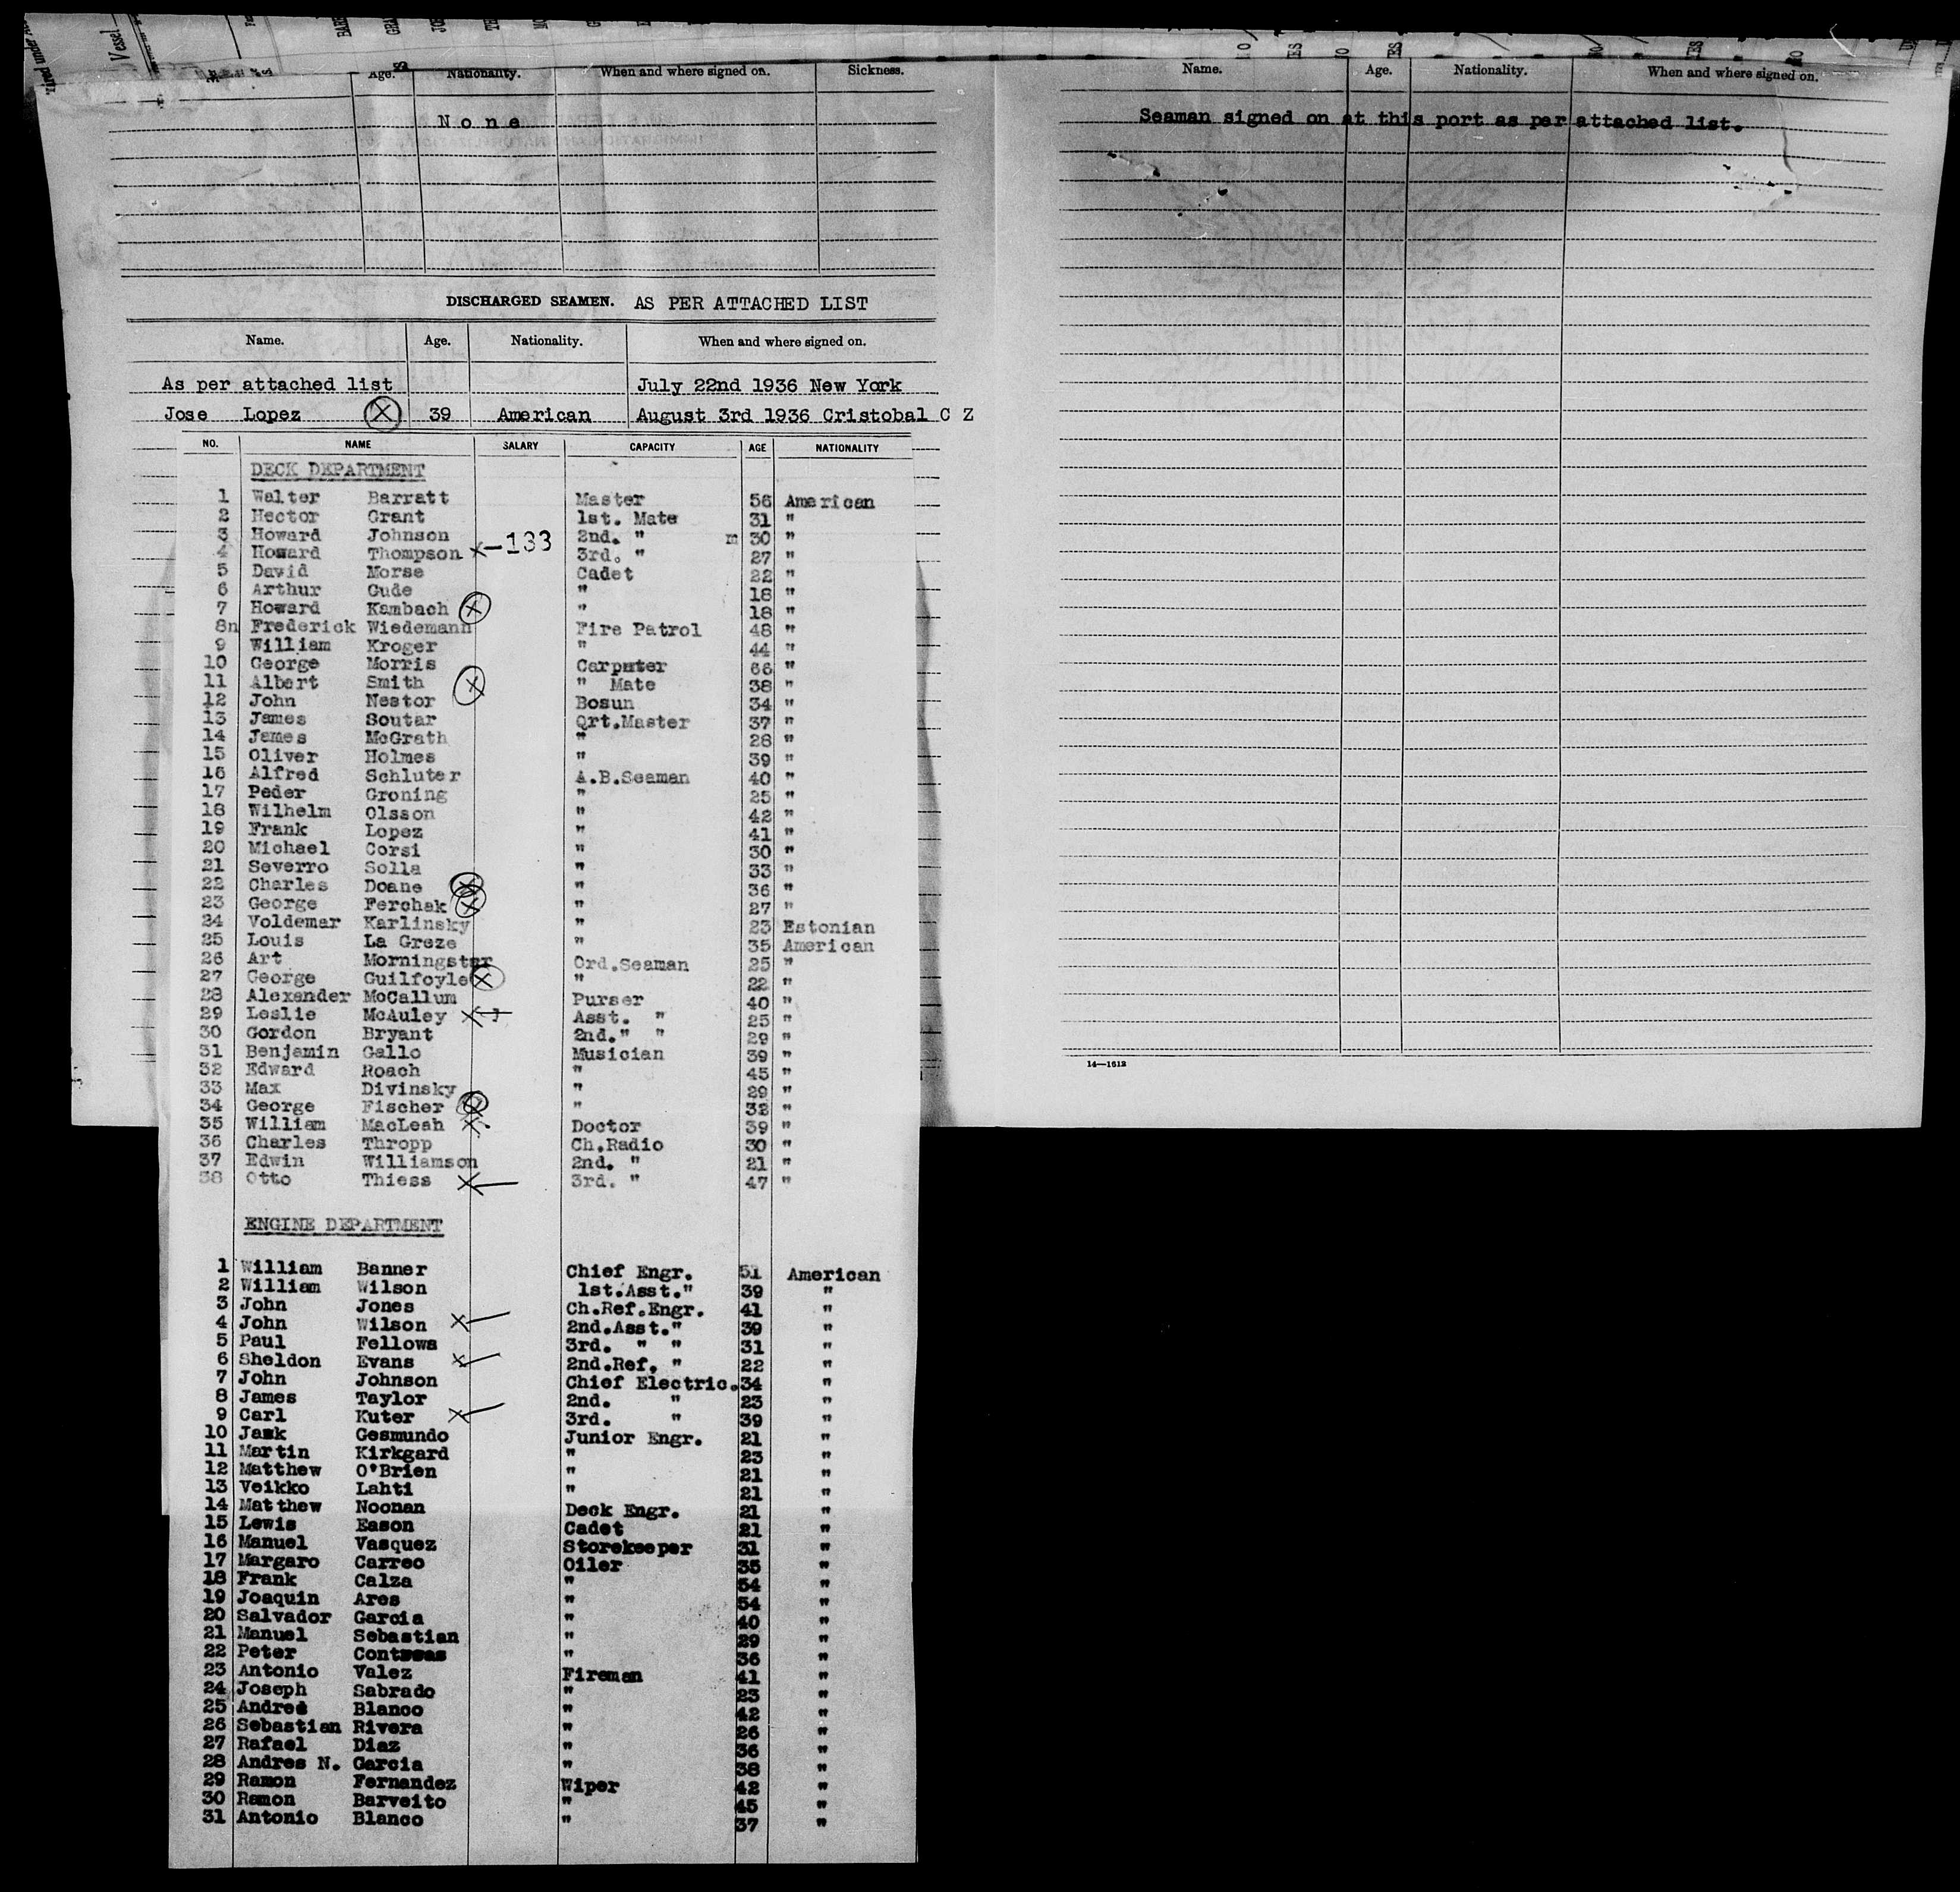 Vessel
Age. Nationality. When and where signed on. Sickness.
None
DISCHARGED SEAMEN. AS PER ATTACHED LIST
Name. Age. Nationality. When and where signed on.
As per attached list July 22nd 1936 New York
Jose Lopez X 39 American August 3rd 1936 Cristobal C Z
NO. NAME SALARY CAPACITY AGE NATIONALITY
DECK DEPARTMENT
1 Walter Barratt Master 56 American
2 Hector Grant 1st. Mate 31 "
3 Howard Johnson 2nd. " m 30 "
4 Howard Thompson x-133 3rd. " 27 "
5 David Morse Cadet 22 "
6 Arthur Gude " 18 "
7 Howard Kambach X " 18 "
8n Frederick Wiedemann Fire Patrol 48 "
9 William Kroger " 44 "
10 George Morris Carpnter 66 "
11 Albert Smith X " Mate 38 "
12 John Nestor Bosun 34 "
13 James Soutar Qrt.Master 37 "
14 James McGrath " 28 "
15 Oliver Holmes " 39 "
16 Alfred Schluter A.B.Seaman 40 "
17 Peder Groning " 25 "
18 Wilhelm Olsson " 42 "
19 Frank Lopez " 41 "
20 Michael Corsi " 30 "
21 Severro Solla " 33 "
22 Charles Doane X " 36 "
23 George Ferchak X " 27 "
24 Voldemar Karlinsky " 23 Estonian
25 Louis La Greze " 35 American
26 Art Morningster Ord.Seaman 25 "
27 George Guilfoyle X " 22 "
28 Alexander McCallum Purser 40 "
29 Leslie McAuley X Asst. " 25 "
30 Gordon Bryant 2nd." " 29 "
31 Benjamin Gallo Musician 39 "
32 Edward Roach " 45 "
33 Max Divinsky " 29 "
34 George Fischer X " 32 "
35 William MacLeah X Doctor 39 "
36 Charles Thropp Ch.Radio 30 "
37 Edwin Williamson 2nd. " 21 "
38 Otto Thiess X 3rd. " 47 "
ENGINE DEPARTMENT
1 William Banner Chief Engr. 51 American
2 William Wilson 1st.Asst." 39 "
3 John Jones Ch.Ref.Engr. 41 "
4 John Wilson X 2nd.Asst." 39 "
5 Paul Fellows 3rd. " " 31 "
6 Sheldon Evans X 2nd.Ref. " 22 "
7 John Johnson Chief Electric. 34 "
8 James Taylor 2nd. " 23 "
9 Carl Kuter X 3rd. " 39 "
10 Jack Gesmundo Junior Engr. 21 "
11 Martin Kirkgard " 23 "
12 Matthew O'Brien " 21 "
13 Veikko Lahti " 21 "
14 Matthew Noonan Deck Engr. 21 "
15 Lewis Eason Cadet 21 "
16 Manuel Vasquez Storekeeper 31 "
17 Margaro Carreo Oiler 35 "
18 Frank Calza " 54 "
19 Joaquin Ares " 54 "
20 Salvador Garcia " 40 "
21 Manuel Sebastian " 29 "
22 Peter Contreas " 36 "
23 Antonio Valez Fireman 41 "
24 Joseph Sabrado " 23 "
25 Andres Blanco " 42 "
26 Sebastian Rivera " 26 "
27 Rafael Diaz " 36 "
28 Andres N. Garcia " 38 "
29 Ramon Fernandez Wiper 42 "
30 Ramon Barveito " 45 "
31 Antonio Blanco " 37 "
Name. Age. Nationality. When and where signed on.
Seaman signed on at this port as per attached list.
14—1612